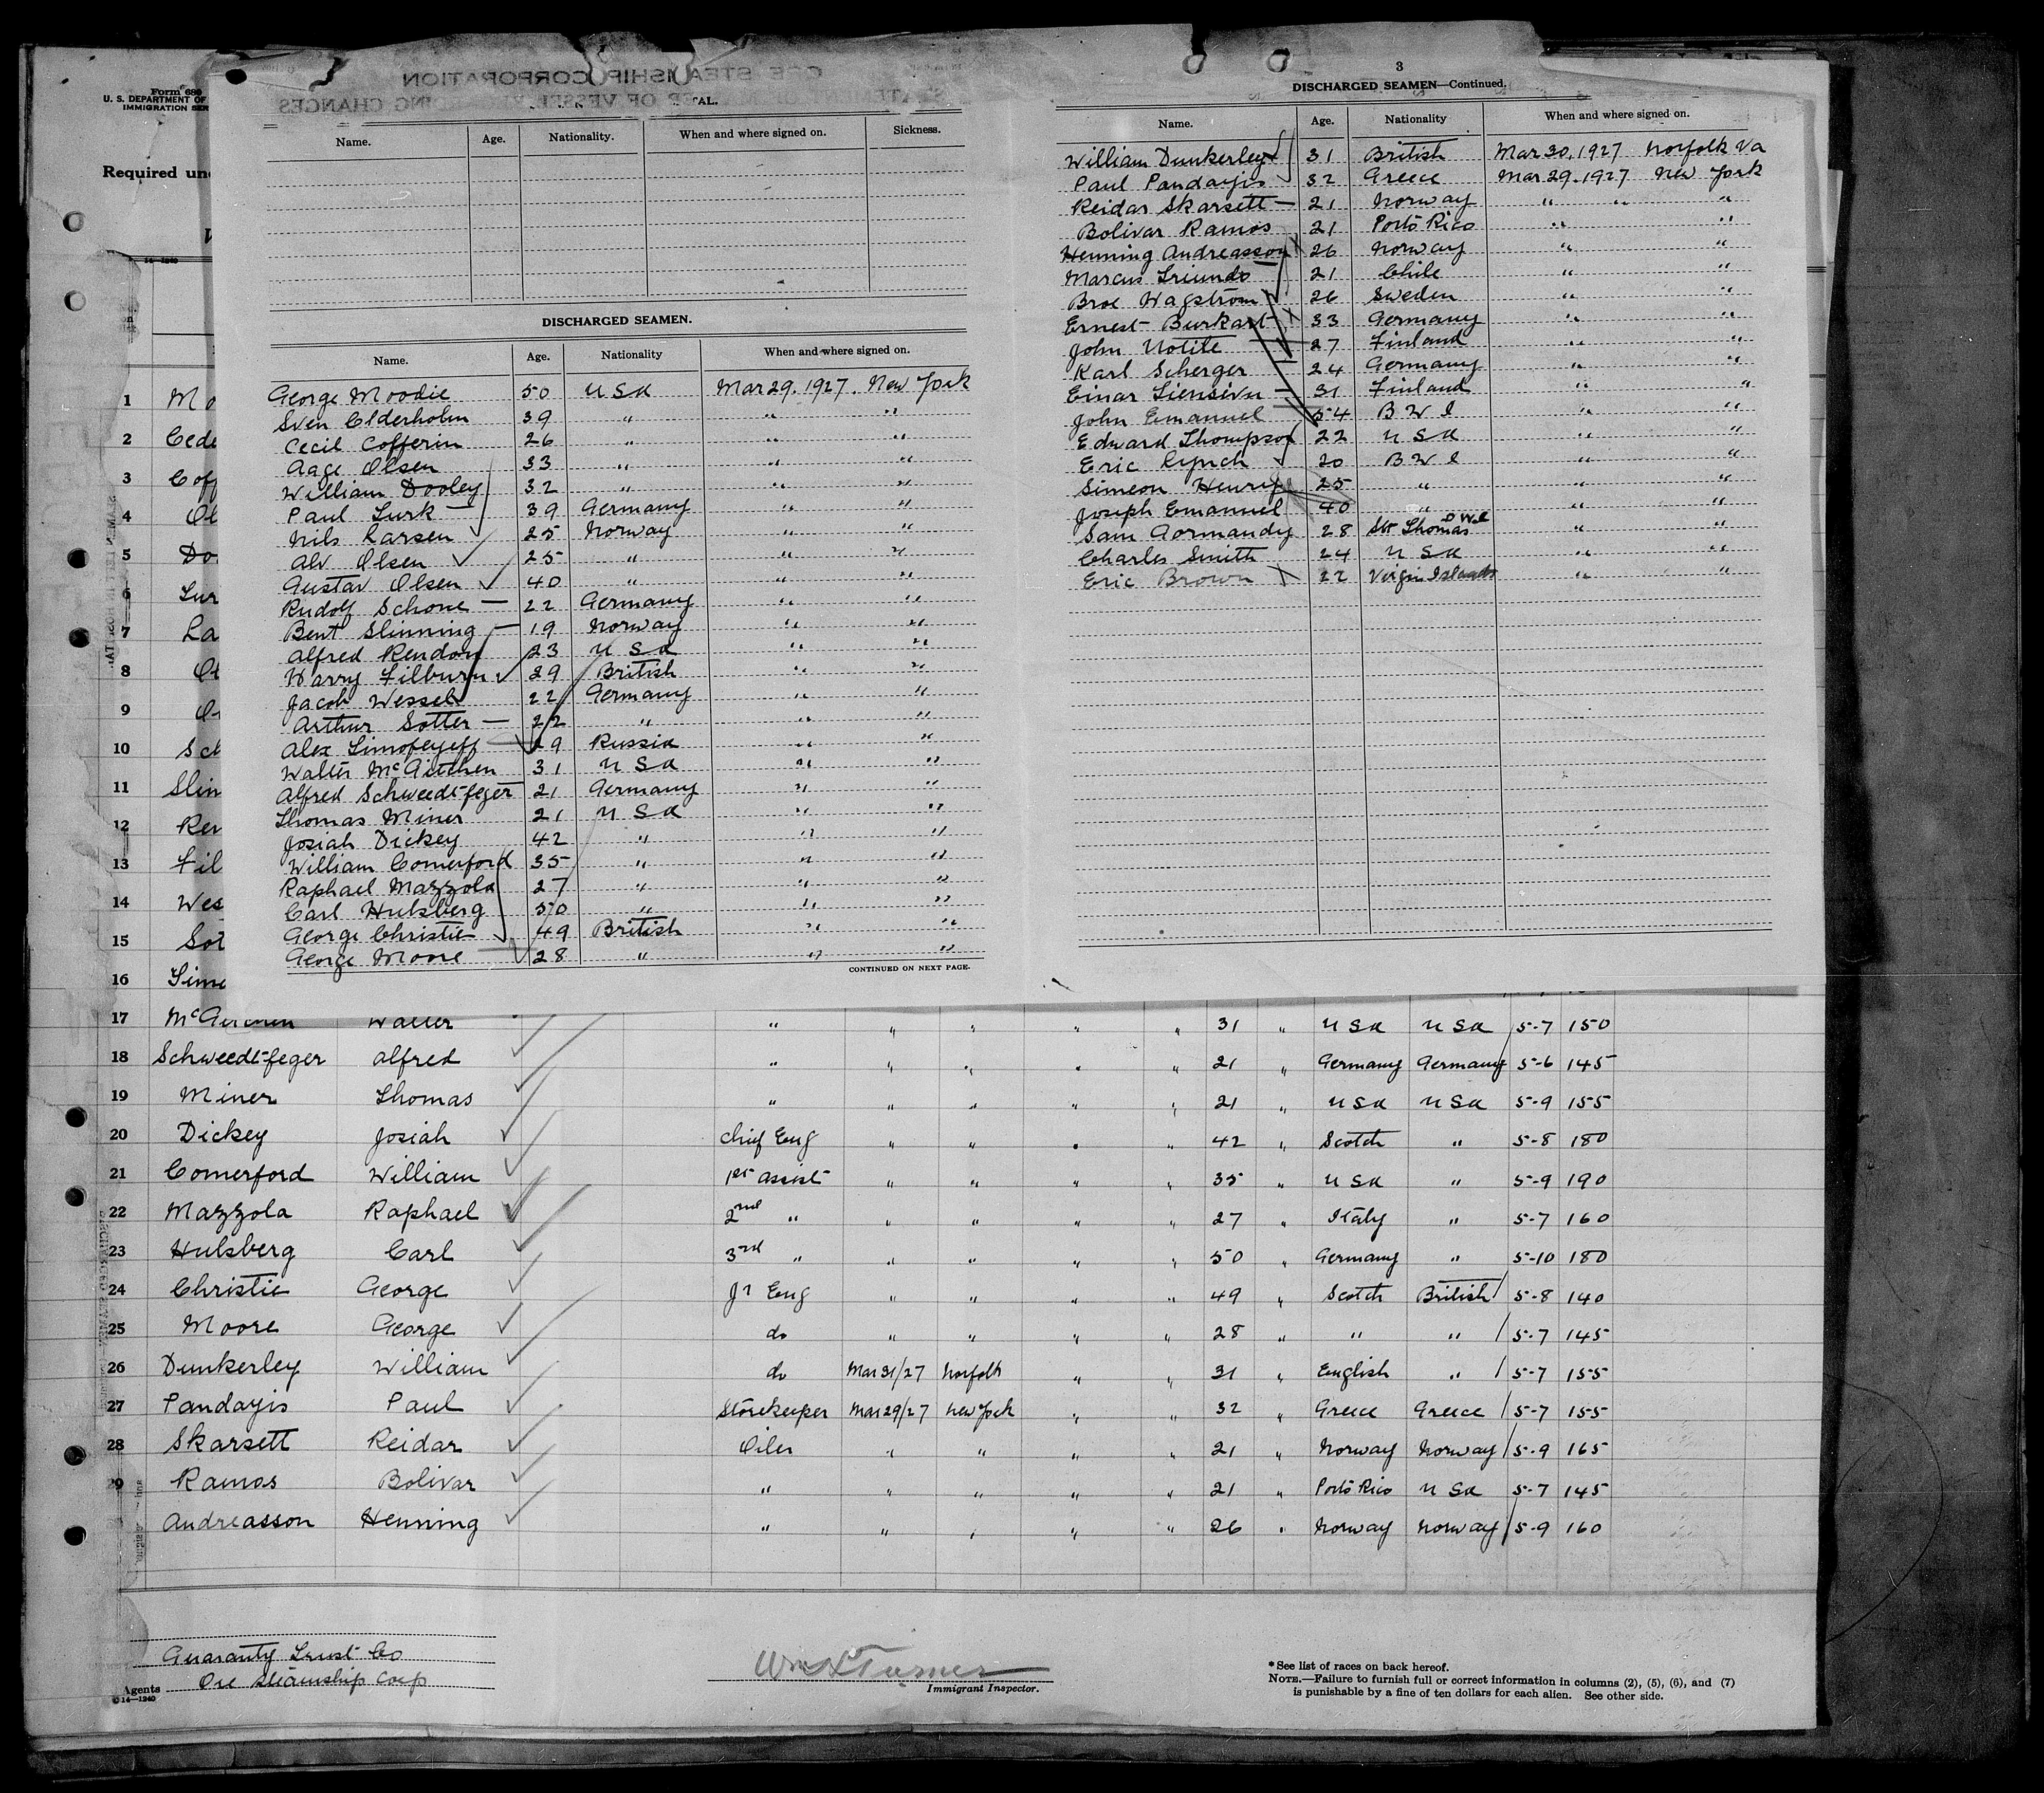 Form 680
U. S. DEPARTMENT OF
IMMIGRATION SER
Required un
14—1240
ORE STEAMSHIP CORPORATION
AL.
Name. Age. Nationality. When and where signed on. Sickness.
DISCHARGED SEAMEN.
Name. Age. Nationality When and where signed on.
George Moodie 50 USA Mar 29. 1927. New York
Sven Clderholm 39 " " "
Cecil Cofferin 26 " " "
Aage Olsen 33 " " "
William Dooley 32 " " "
Paul Turk 39 Germany " "
Nils Larsen 25 Norway " "
Alv Olsen 25 " " "
Gustav Olsen 40 " " "
Rudolf Schone 22 Germany " "
Bent Slinning 19 Norway " "
Alfred Rendon 23 USA " "
Harry Filburn 29 British " "
Jacob Wessel 22 Germany " "
Arthur Sotter 22 " " "
Alex Timofeyeff 29 Russia " "
Walter McGitchen 31 USA " "
Alfred Schweedt-feger 21 Germany " "
Thomas Miner 21 USA " "
Josiah Dickey 42 " " "
William Comerford 35 " " "
Raphael Mazzola 27 " " "
Carl Hulsberg 50 " " "
George Christie 49 British " "
George Moore 28 " " "
CONTINUED ON NEXT PAGE.
3
DISCHARGED SEAMEN—Continued.
Name. Age. Nationality When and where signed on.
William Dunkerley 31 British Mar 30, 1927 Norfolk Va
Paul Pandayis 32 Greece Mar 29. 1927 New York
Reidar Skarsett 21 Norway " " "
Bolivar Ramos 21 Porto Rico " "
Henning Andreasson 26 Norway " "
Marcus Triundo 21 Chile " "
Broe Wagstrom 26 Sweden " "
Ernest Burkart 33 Germany " "
John Notile 27 Finland " "
Karl Scherger 24 Germany " "
Einar Liensivu 31 Finland " "
John Emanuel 54 B W I " "
Edward Thompson 22 USA " "
Eric Lynch 20 B W I " "
Simeon Henry 25 " " "
Joseph Emanuel 40 " " "
Sam Gormandy 28 St Thomas D W I " "
Charles Smith 24 USA " "
Eric Brown 22 Virgin Islands " "
1 Mo
2 Cede
3 Coff
4 Ol
5 Do
6 Tur
7 La
8 Ol
9 Ol
10 Sch
11 Slin
12 Ren
13 Fil
14 Wes
15 Sot
16 Timo
17 McGitchen Walter " " " " " 31 " USA USA 5-7 150
18 Schweedt-feger Alfred " " " " " 21 " Germany Germany 5-6 145
19 Miner Thomas " " " " " 21 " USA USA 5-9 155
20 Dickey Josiah Chief Eng " " " " 42 " Scotch " 5-8 180
21 Comerford William 1st assist " " " " 35 " USA " 5-9 190
22 Mazzola Raphael 2nd " " " " " 27 " Italy " 5-7 160
23 Hulsberg Carl 3rd " " " " " 50 " Germany " 5-10 180
24 Christie George Jr Eng " " " " 49 " Scotch British 5-8 140
25 Moore George do " " " " 28 " " " 5-7 145
26 Dunkerley William do Mar 31/27 Norfolk " " 31 " English " 5-7 155
27 Pandayis Paul Storekeeper Mar 29/27 New York " " 32 " Greece Greece 5-7 155
28 Skarsett Reidar Oiler " " " " 21 " Norway Norway 5-9 165
29 Ramos Bolivar " " " " " 21 " Porto Rico USA 5-7 145
Andreasson Henning " " " " " 26 " Norway Norway 5-9 160
Guaranty Trust Co
Agents Ore Steamship Corp
14—1240
Wm L Turner
Immigrant Inspector.
*See list of races on back hereof.
NOTE.—Failure to furnish full or correct information in columns (2), (5), (6), and (7)
is punishable by a fine of ten dollars for each alien. See other side.